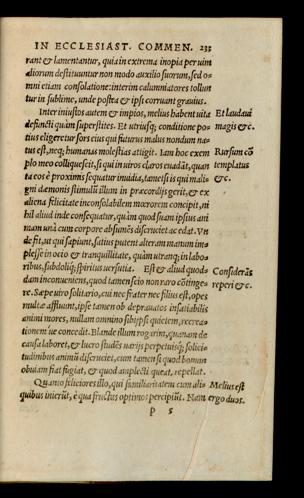 IN ECCLESIAST. COMMEN. 233
rant & lamentantur, quia in extrema inopia per uim
aliorum destituuntur non modo auxilio suorum, sed o-
mni etiam consolatione: interim calumniatores tollun
tur in sublime, unde postea & ipsi corruant grauius.
Inter iniustos autem & impios, melius habent uita Et laudaui
defuncti quàm superstites. Et utriusq; conditione po- magis &c.
tius eligeretur sors eius qui futurus malus nondum na-
tus est, neq; humanus molestias attigit. Iam hoc exem Rursum cō
plo meo colliquescit, si qui in uiros claros euadāt, quan templatus
ta eos è proximis sequatur inuidia, tametsi is qui mali- &c.
gni dæmonis stimulū illum in præcordijs gerit, & ex
aliena felicitate inconsolabilem mœrorem concipit, ni
hil aliud inde consequatur, quàm quod suam ipsius ani
mam unà cum corpore absumēs discruciet ac edat. Vn
de fit, ut qui sapiunt, satius putent alteram manum im-
plesse in ocio & tranquillitate, quàm utranq; in labo-
ribus, subdoliq; spiritus uersutia. Est & aliud quod- Considerās
dam inconueniens, quod tamen scio non raro cōtinge- reperi &c.
re. Sæpe uiro solitario, cui nec frater nec filius est, opes
multæ affluunt, ipse tamen ob deprauatos insatiabilis
animi mores, nullam omnino sibijpsi quietem, recrea-
tionem ue concedit. Blande illum rogarim, quanam de
causa laboret, & lucro studēs uarijs perpetuisq; solici-
tudinibus animū discruciet, cum tamen si quod bonum
obuiam fiat fugiat, & quod amplecti queat, repellat.
Quanto feliciores illo, qui familiaritatem cum alio Melius est
quibus inierūt, è qua fructus optimos percipiūt. Nam ergo duos.
P 5